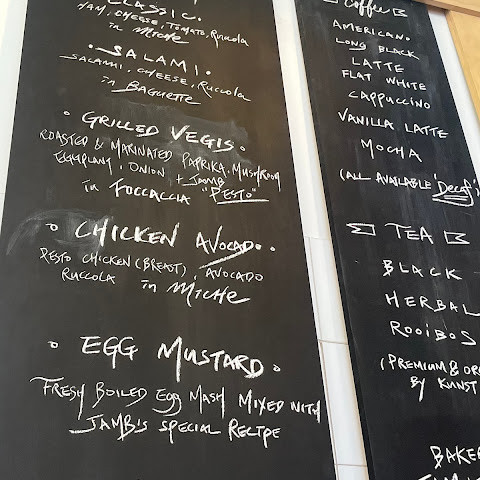 CLASSIC.
HAM, CHEESE, TOMATO, Ruccola
in Miche
· SALAMI ·
SALAMI, CHEESE, Ruccola
in BAGUETTE
· GRILLED VEGIS ·
ROASTED & MARINATED PAPRIKA, MUSHROOM
EGGPLANT, ONION + JAMB
in FOCCACCIA "PESTO"
· CHICKEN AVOCADO ·
PESTO CHICKEN (BREAST), AVOCADO
RUCCOLA in MICHE
· EGG MUSTARD ·
FRESH BOILED EGG MASH MIXED WITH
JAMB'S SPECIAL RECIPE
Coffee
AMERICANO
LONG BLACK
LATTE
FLAT WHITE
CAPPUCCINO
VANILLA LATTE
MOCHA
(ALL AVAILABLE 'Decaf')
TEA
BLACK
HERBAL
ROOIBOS
(PREMIUM & OR
BY KUNST
BAKE